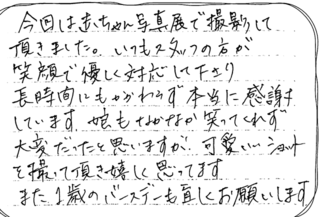 今回は赤ちゃん写真展で撮影して
頂きました。いつもスタッフの方が
笑顔で優しく対応して下さり
長時間にもかかわらず本当に感謝
しています 娘もなかなか笑ってくれず
大変だったと思いますが、可愛いいショット
を撮って頂き嬉しく思ってます
また1歳のバースデーも宜しくお願いします